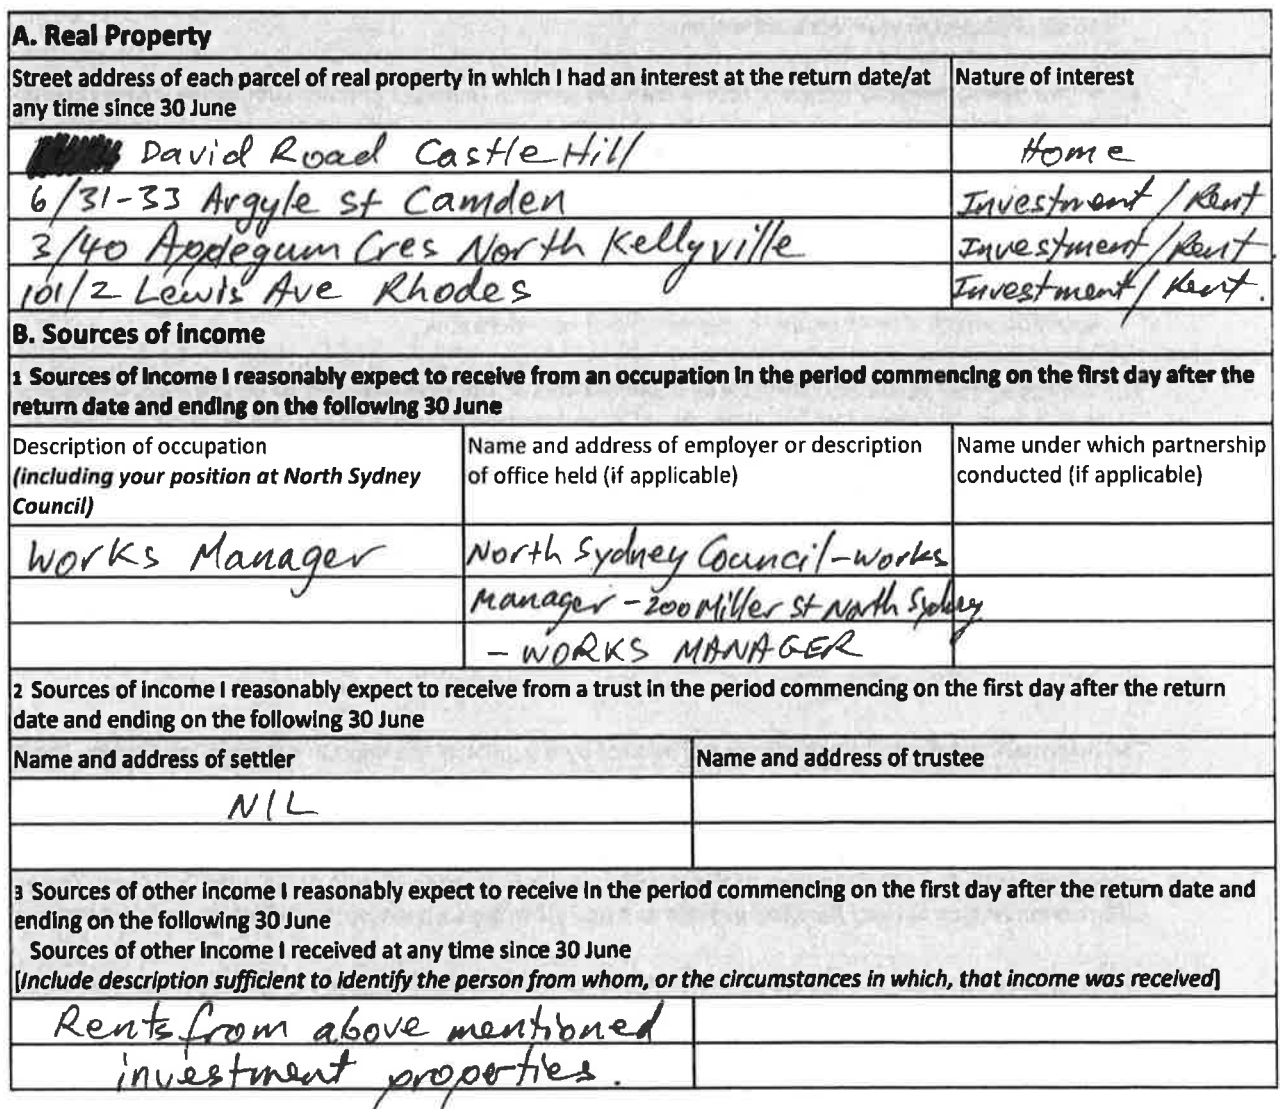 A. Real Property
Street address of each parcel of real property in which I had an interest at the return date/at
any time since 30 June
Nature of interest
David Road Castle Hill
Home
6/31-33 Argyle St Camden
Investment / Rent
3/40 Applegum Cres North Kellyville
Investment/Rent.
101/2 Lewis Ave Rhodes
Investment/Rent.
B. Sources of income
1 Sources of income I reasonably expect to receive from an occupation in the period commencing on the first day after the
return date and ending on the following 30 June
Description of occupation
(including your position at North Sydney
Council)
Name and address of employer or description
of office held (if applicable)
Name under which partnership
conducted (if applicable)
Works Manager
North Sydney Council - Works
Manager - 200 Miller St North Sydney
- WORKS MANAGER
2 Sources of income I reasonably expect to receive from a trust in the period commencing on the first day after the return
date and ending on the following 30 June
Name and address of settler
Name and address of trustee
NIL
3 Sources of other income I reasonably expect to receive in the period commencing on the first day after the return date and
ending on the following 30 June
Sources of other income I received at any time since 30 June
[Include description sufficient to identify the person from whom, or the circumstances in which, that income was received]
Rents from above mentioned
investment properties.